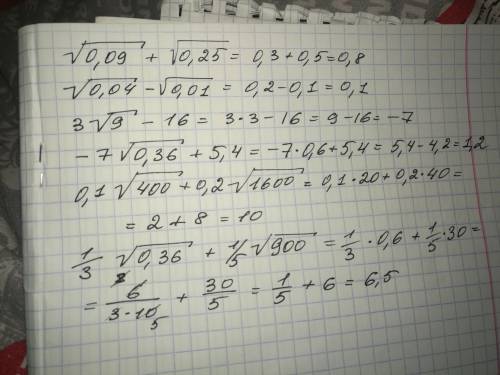 √0,09 + √0,25 = 0,3 + 0,5 = 0,8
√0,04 - √0,01 = 0,2 - 0,1 = 0,1
3√9 - 16 = 3·3 - 16 = 9 - 16 = -7
-7√0,36 + 5,4 = -7·0,6 + 5,4 = 5,4 - 4,2 = 1,2
0,1√400 + 0,2·√1600 = 0,1·20 + 0,2·40 =
= 2 + 8 = 10
1/3 √0,36 + 1/5 √900 = 1/3 · 0,6 + 1/5 · 30 =
= 6/(3·10) + 30/5 = 1/5 + 6 = 6,5